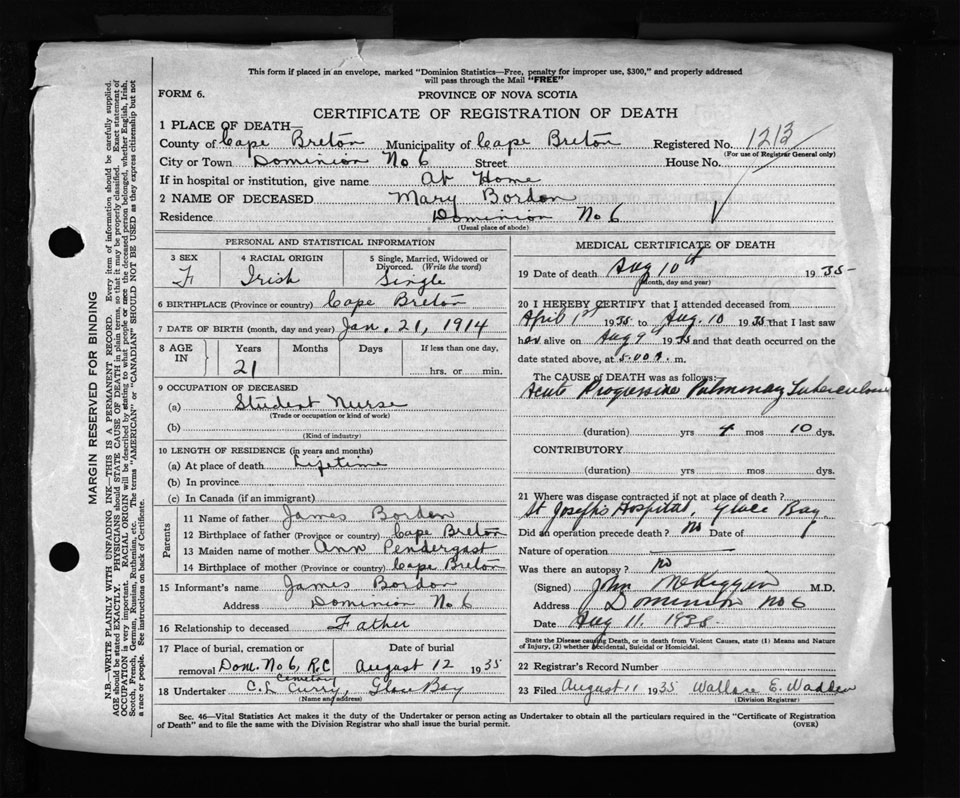 This form if placed in an envelope, marked "Dominion Statistics—Free, penalty for improper use, $300," and properly addressed
will pass through the Mail "FREE"
FORM 6.
PROVINCE OF NOVA SCOTIA
CERTIFICATE OF REGISTRATION OF DEATH
1 PLACE OF DEATH—
County of Cape Breton Municipality of Cape Breton Registered No. 1213
(For use of Registrar General only)
City or Town Dominion No 6 Street House No.
If in hospital or institution, give name At Home
2 NAME OF DECEASED Mary Bordon
Residence Dominion No 6
(Usual place of abode)
PERSONAL AND STATISTICAL INFORMATION
3 SEX 4 RACIAL ORIGIN 5 Single, Married, Widowed or
Divorced. (Write the word)
F Irish Single
6 BIRTHPLACE (Province or country) Cape Breton
7 DATE OF BIRTH (month, day and year) Jan. 21, 1914
8 AGE IN Years Months Days If less than one day,
21 hrs. or min.
9 OCCUPATION OF DECEASED
(a) Student Nurse
(Trade or occupation or kind of work)
(b)
(Kind of industry)
10 LENGTH OF RESIDENCE (in years and months)
(a) At place of death Lifetime
(b) In province
(c) In Canada (if an immigrant)
Parents
11 Name of father James Borden
12 Birthplace of father (Province or country) Cape Breton
13 Maiden name of mother Ann Pendergast
14 Birthplace of mother (Province or country) Cape Breton
15 Informant's name James Bordon
Address Dominion No 6
16 Relationship to deceased Father
17 Place of burial, cremation or Date of burial
removal Dom. No 6, R.C August 12 1935
Cemetery
18 Undertaker C.L Curry, Glace Bay
(Name and address)
MEDICAL CERTIFICATE OF DEATH
19 Date of death Aug 10th 1935
(Month, day and year)
20 I HEREBY CERTIFY that I attended deceased from
April 1st 1935 to Aug. 10 1935 that I last saw
her alive on Aug 9th 1935 and that death occurred on the
date stated above, at 5.00 a. m.
The CAUSE OF DEATH was as follows:
Acute Progressive Pulmonary Tuberculosis
(duration) yrs 4 mos 10 dys.
CONTRIBUTORY
(duration) yrs mos dys.
21 Where was disease contracted if not at place of death?
St Joseph's Hospital, Glace Bay
Did an operation precede death? No Date of
Nature of operation
Was there an autopsy? no
(Signed) John McKeggin M.D.
Address Dominion No 6
Date Aug 11. 1935
State the Disease causing Death, or in death from Violent Causes, state (1) Means and Nature
of Injury, (2) whether Accidental, Suicidal or Homicidal.
22 Registrar's Record Number
23 Filed August 11 1935 Wallace E. Wadden
(Division Registrar)
Sec. 46—Vital Statistics Act makes it the duty of the Undertaker or person acting as Undertaker to obtain all the particulars required in the "Certificate of Registration
of Death" and to file the same with the Division Registrar who shall issue the burial permit. (OVER)
MARGIN RESERVED FOR BINDING
N.B.—WRITE PLAINLY WITH UNFADING INK—THIS IS A PERMANENT RECORD. Every item of information should be carefully supplied.
AGE should be stated EXACTLY. PHYSICIANS should STATE CAUSE OF DEATH in plain terms, so that it may be properly classified. Exact statement of
OCCUPATION is very important. RACIAL ORIGIN will be described by stating to what people or race the deceased person belonged, whether English, Irish,
Scotch, French, German, Russian, Ruthenian, etc. The terms "AMERICAN" or "CANADIAN" SHOULD NOT BE USED as they express citizenship but not
a race or people. See instructions on back of Certificate.